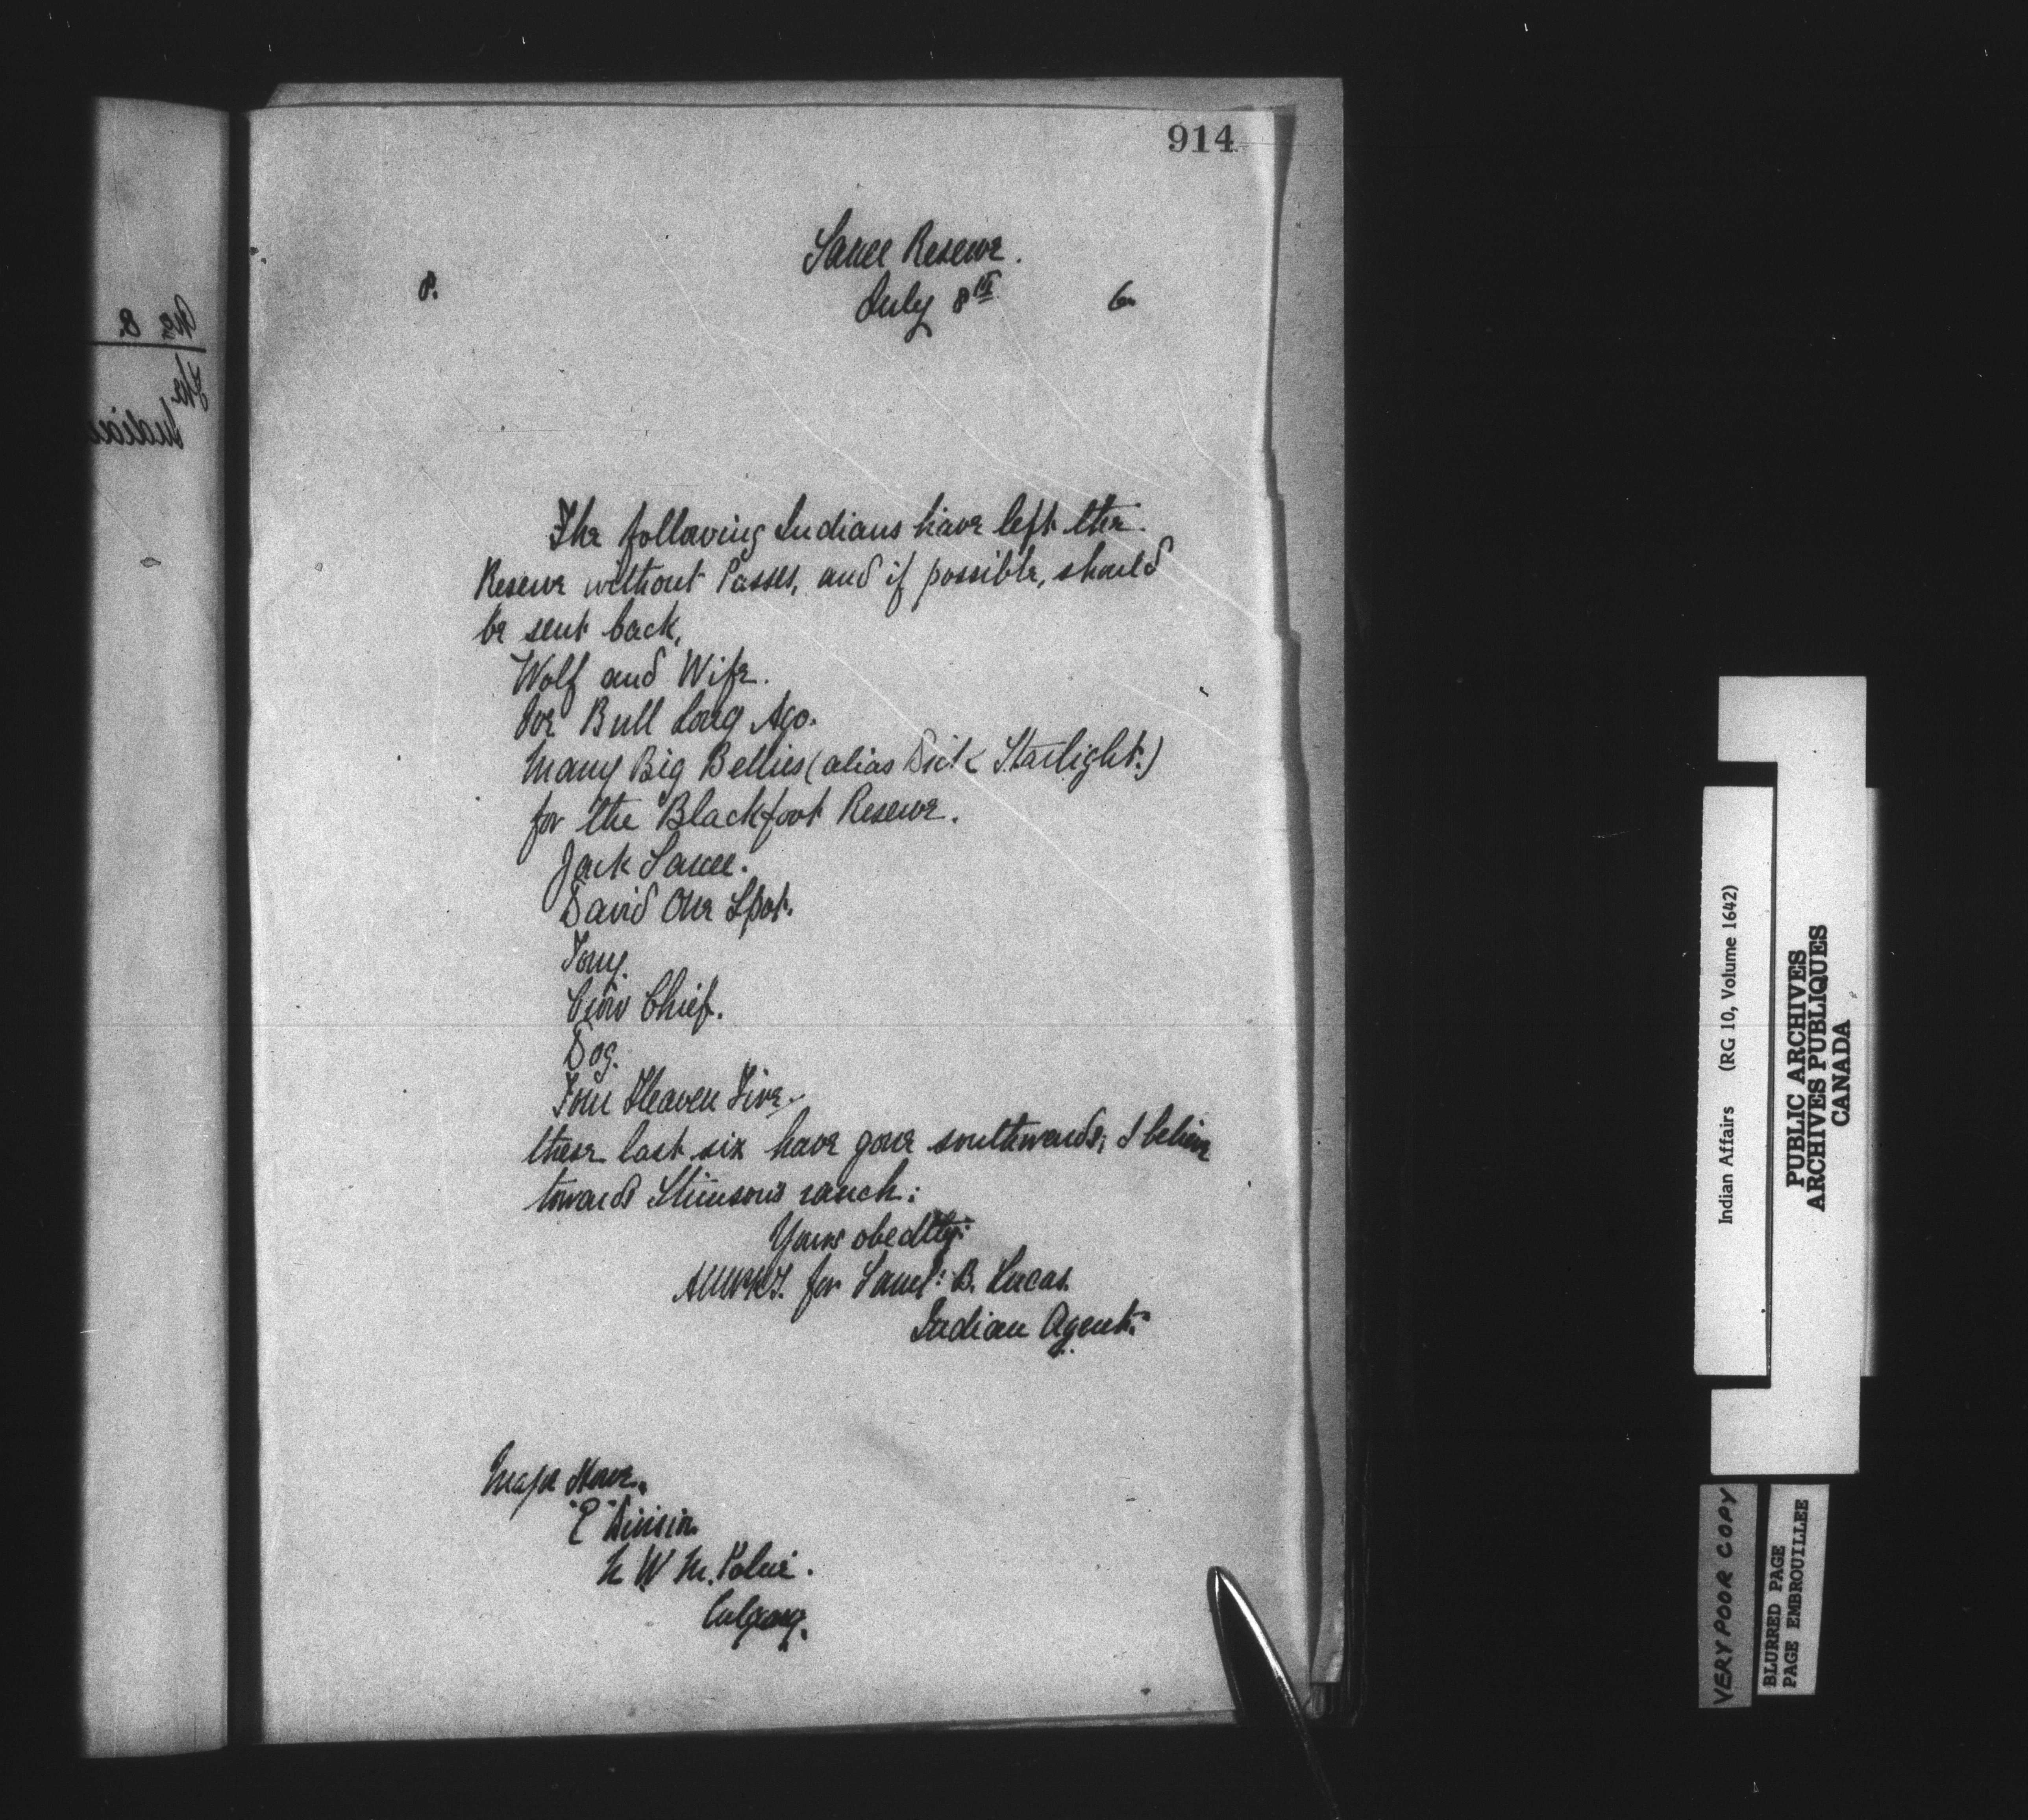 914
Sarcee Reserve.
8. July 8th 6
The following Indians have left the
Reserve without Passes, and if possible, should
be sent back,
Wolf and Wife.
Joe Bull Long Ago.
Many Big Bellies (alias Dick Starlight.)
for the Blackfoot Reserve.
Jack Sarcee.
David One Spot.
Tony.
Crow Chief.
Dog.
Tom Heaven Fire.
these last six have gone southwards, I believe
towards Stimson's ranch:
Yours obedtly:
for Saml: B. Lucas.
Indian Agent.
Major Howe.
"E" Division
N W M. Police.
Calgary.
Indian Affairs (RG 10, Volume 1642)
PUBLIC ARCHIVES
ARCHIVES PUBLIQUES
CANADA
VERY POOR COPY
BLURRED PAGE
PAGE EMBROUILLEE